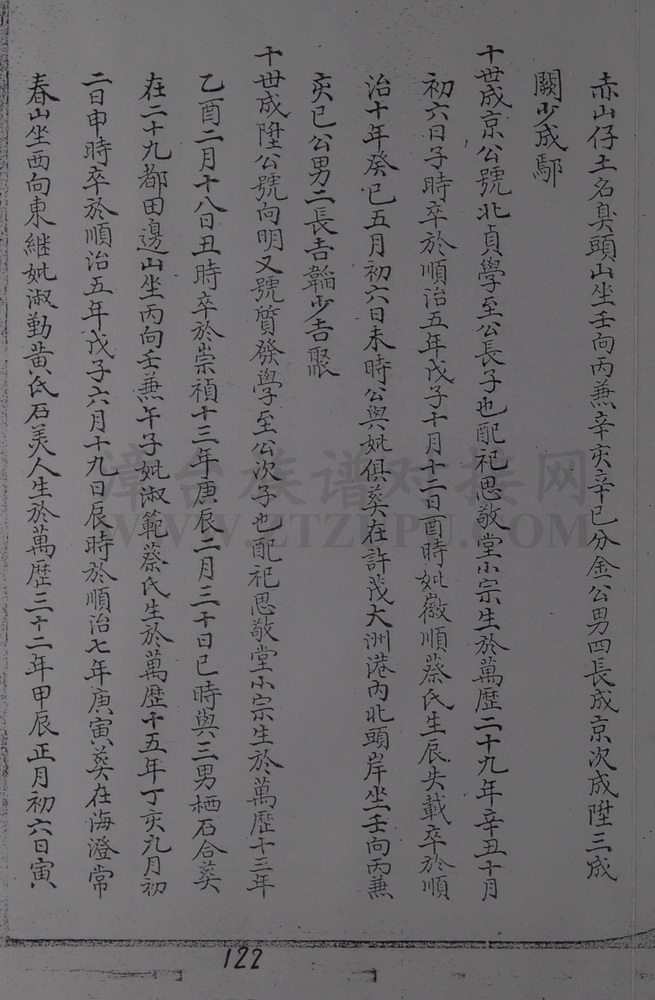 赤山仔土名臭頭山坐壬向丙兼辛亥辛巳分金公男四長成京次成陞三成
闕少成鄢
十世成京公號北貞學至公長子也配祀思敬堂小宗生於萬歷二十九年辛丑十月
初六日子時卒於順治五年戊子十月十二日酉時妣徽順蔡氏生辰失載卒於順
治十年癸巳五月初六日未時公與妣俱葬在許茂大洲港內北頭岸坐壬向丙兼
亥巳公男二長吉韜少吉聚
十世成陞公號向明又號質發學至公次子也配祀思敬堂小宗生於萬歷十三年
乙酉二月十八日丑時卒於崇禎十三年庚辰二月三十日巳時與三男栖石合葬
在二十九都田邊山坐丙向壬兼午子妣淑範蔡氏生於萬歷十五年丁亥九月初
二日申時卒於順治五年戊子六月十九日辰時於順治七年庚寅葬在海澄常
春山坐西向東継妣淑勤黃氏石美人生於萬歷三十二年甲辰正月初六日寅
122
漳台族谱对接网
WWW.ZTZUPU.COM